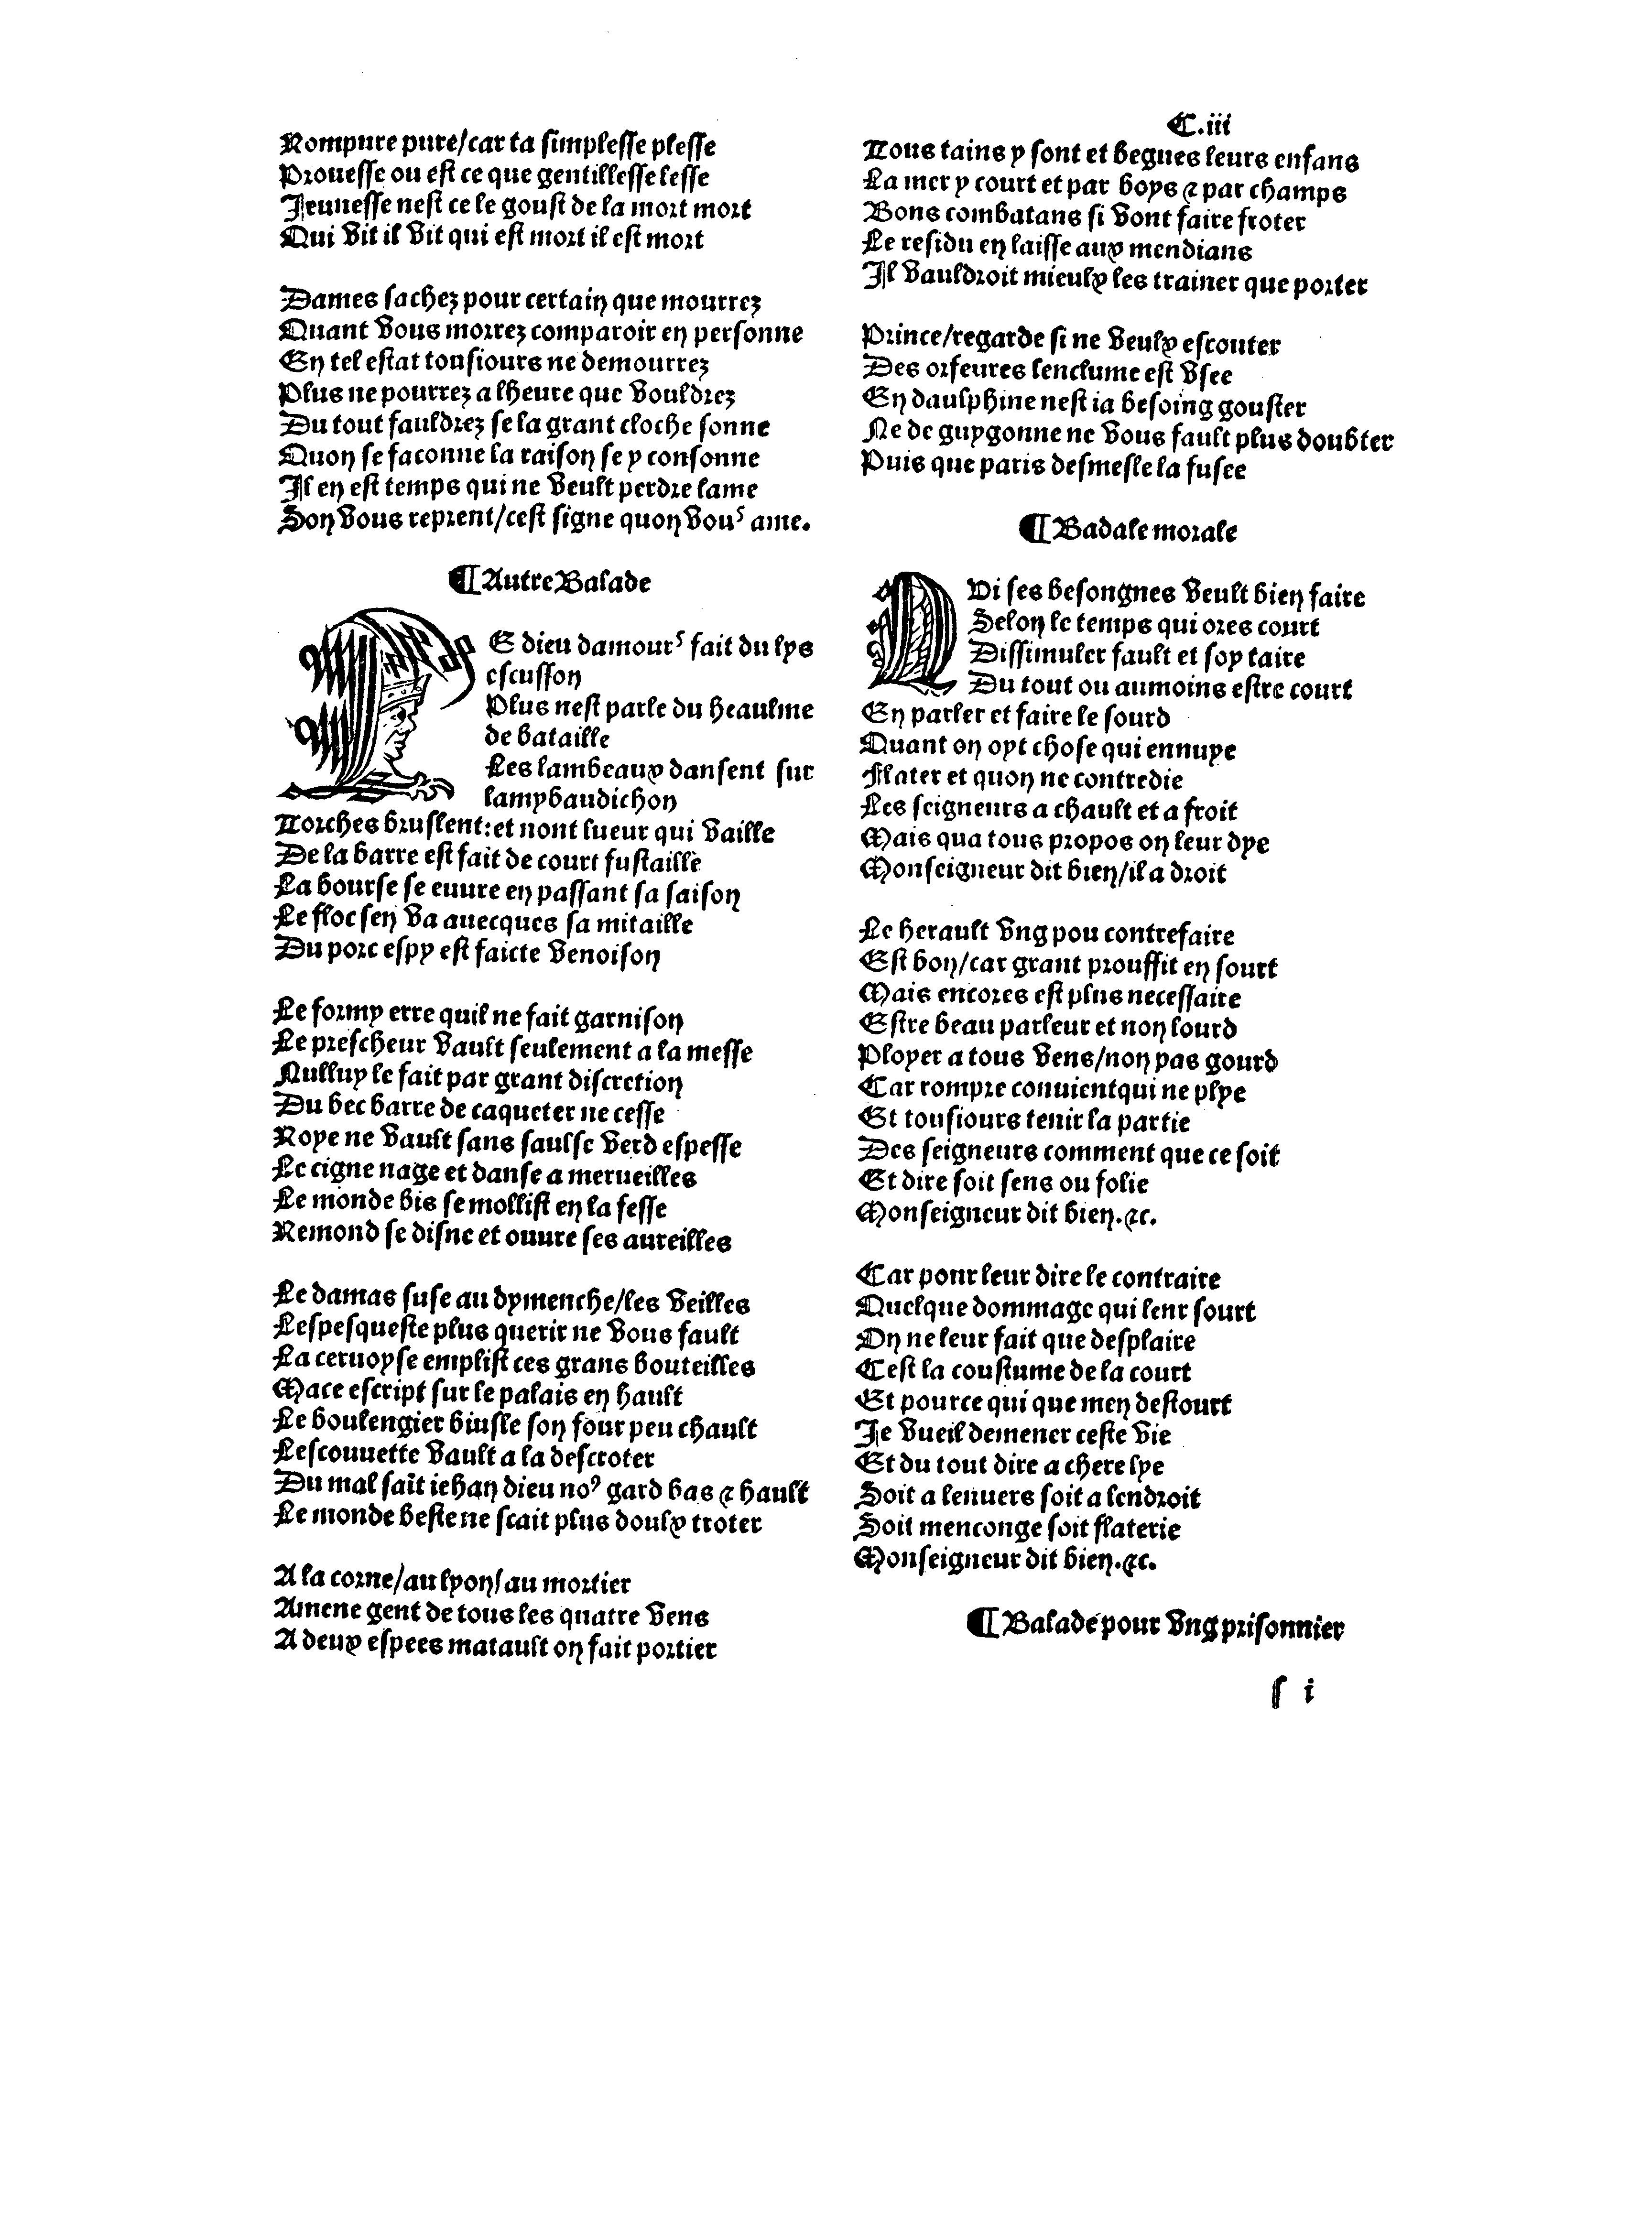 C.iii
Rompure pure/car ta simplesse plesse
Prouesse ou est ce que gentillesse lesse
Jeunesse nest ce le goust de la mort mort
Qui vit il vit qui est mort il est mort
Dames sachez pour certain que mourrez
Quant vous morrez comparoir en personne
En tel estat tousiours ne demourrez
Plus ne pourrez a lheure que vouldrez
Du tout fauldrez se la grant cloche sonne
Quon se faconne la raison se y consonne
Il en est temps qui ne veult perdre lame
Son vous reprent/cest signe quon vouˢ ame.
¶ Autre Balade
E dieu damourˢ fait du lys
escusson
Plus nest parle du heaulme
de bataille
Les lambeaux dansent sur
lamybaudichon
Torches bruslent:et nont sueur qui vaille
De la barre est fait de court fustaille
La bourse se euure en passant sa saison
Le floc sen va auecques sa mitaille
Du porc espy est faicte venoison
Le formy erre quil ne fait garnison
Le prescheur vault seulement a la messe
Nulluy le fait par grant discretion
Du bec barre de caqueter ne cesse
Roye ne vault sans saulse verd espesse
Le cigne nage et danse a merueilles
Le monde bis se mollist en la fesse
Remond se disne et ouure ses aureilles
Le damas suse au dymenche/les veilles
Lespesqueste plus querir ne vous fault
La ceruoyse emplist ces grans bouteilles
Mace escript sur le palais en hault
Le boulengier biusle son four peu chault
Lescouuette vault a la descroter
Du mal sait iehan dieu noꝰ gard bas ⁊ hault
Le monde beste ne scait plus doulx troter
A la corne/au lyon/au mortier
Amene gent de tous les quatre vens
A deux espees matault on fait portier
Tous tains y sont et begues leurs enfans
La mer y court et par boys ⁊ par champs
Bons combatans si vont faire froter
Le residu en laisse aux mendians
Il vauldroit mieulx les trainer que porter
Prince/regarde si ne veulx escouter
Des orfeures lenclume est vsee
En daulphine nest ia besoing gouster
Ne de guygonne ne vous fault plus doubter
Puis que paris desmesle la fusee
¶ Badale morale
QVi ses besongnes veult bien faire
Selon le temps qui ores court
Dissimuler fault et soy taire
Du tout ou aumoins estre court
En parler et faire le sourd
Quant on oyt chose qui ennuye
Flater et quon ne contredie
Les seigneurs a chault et a froit
Mais qua tous propos on leur dye
Monseigneur dit bien/il a droit
Le herault vng pou contrefaire
Est bon/car grant prouffit en sourt
Mais encores est plus necessaire
Estre beau parleur et non lourd
Ployer a tous vens/non pas gourd
Car rompre conuientqui ne plye
Et tousiours tenir la partie
Des seigneurs comment que ce soit
Et dire soit sens ou folie
Monseigneur dit bien.⁊c.
Car ponr leur dire le contraire
Quelque dommage qui lenr sourt
On ne leur fait que desplaire
Cest la coustume de la court
Et pource qui que men destourt
Je vueil demener ceste vie
Et du tout dire a chere lye
Soit a lenuers soit a lendroit
Soit menconge soit flaterie
Monseigneur dit bien.⁊c.
¶ Balade pour vng prisonnier
s i